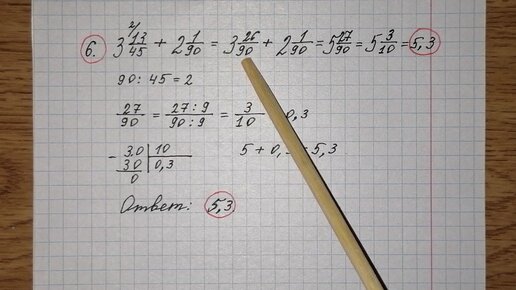 6. 3 13/45 2/ + 2 1/90 = 3 26/90 + 2 1/90 = 5 27/90 = 5 3/10 = 5,3
90 : 45 = 2
27/90 = 27 : 9 / 90 : 9 = 3/10 0,3
- 3,0 | 10
30 | 0,3
0
5 + 0, 5,3
Ответ: 5,3